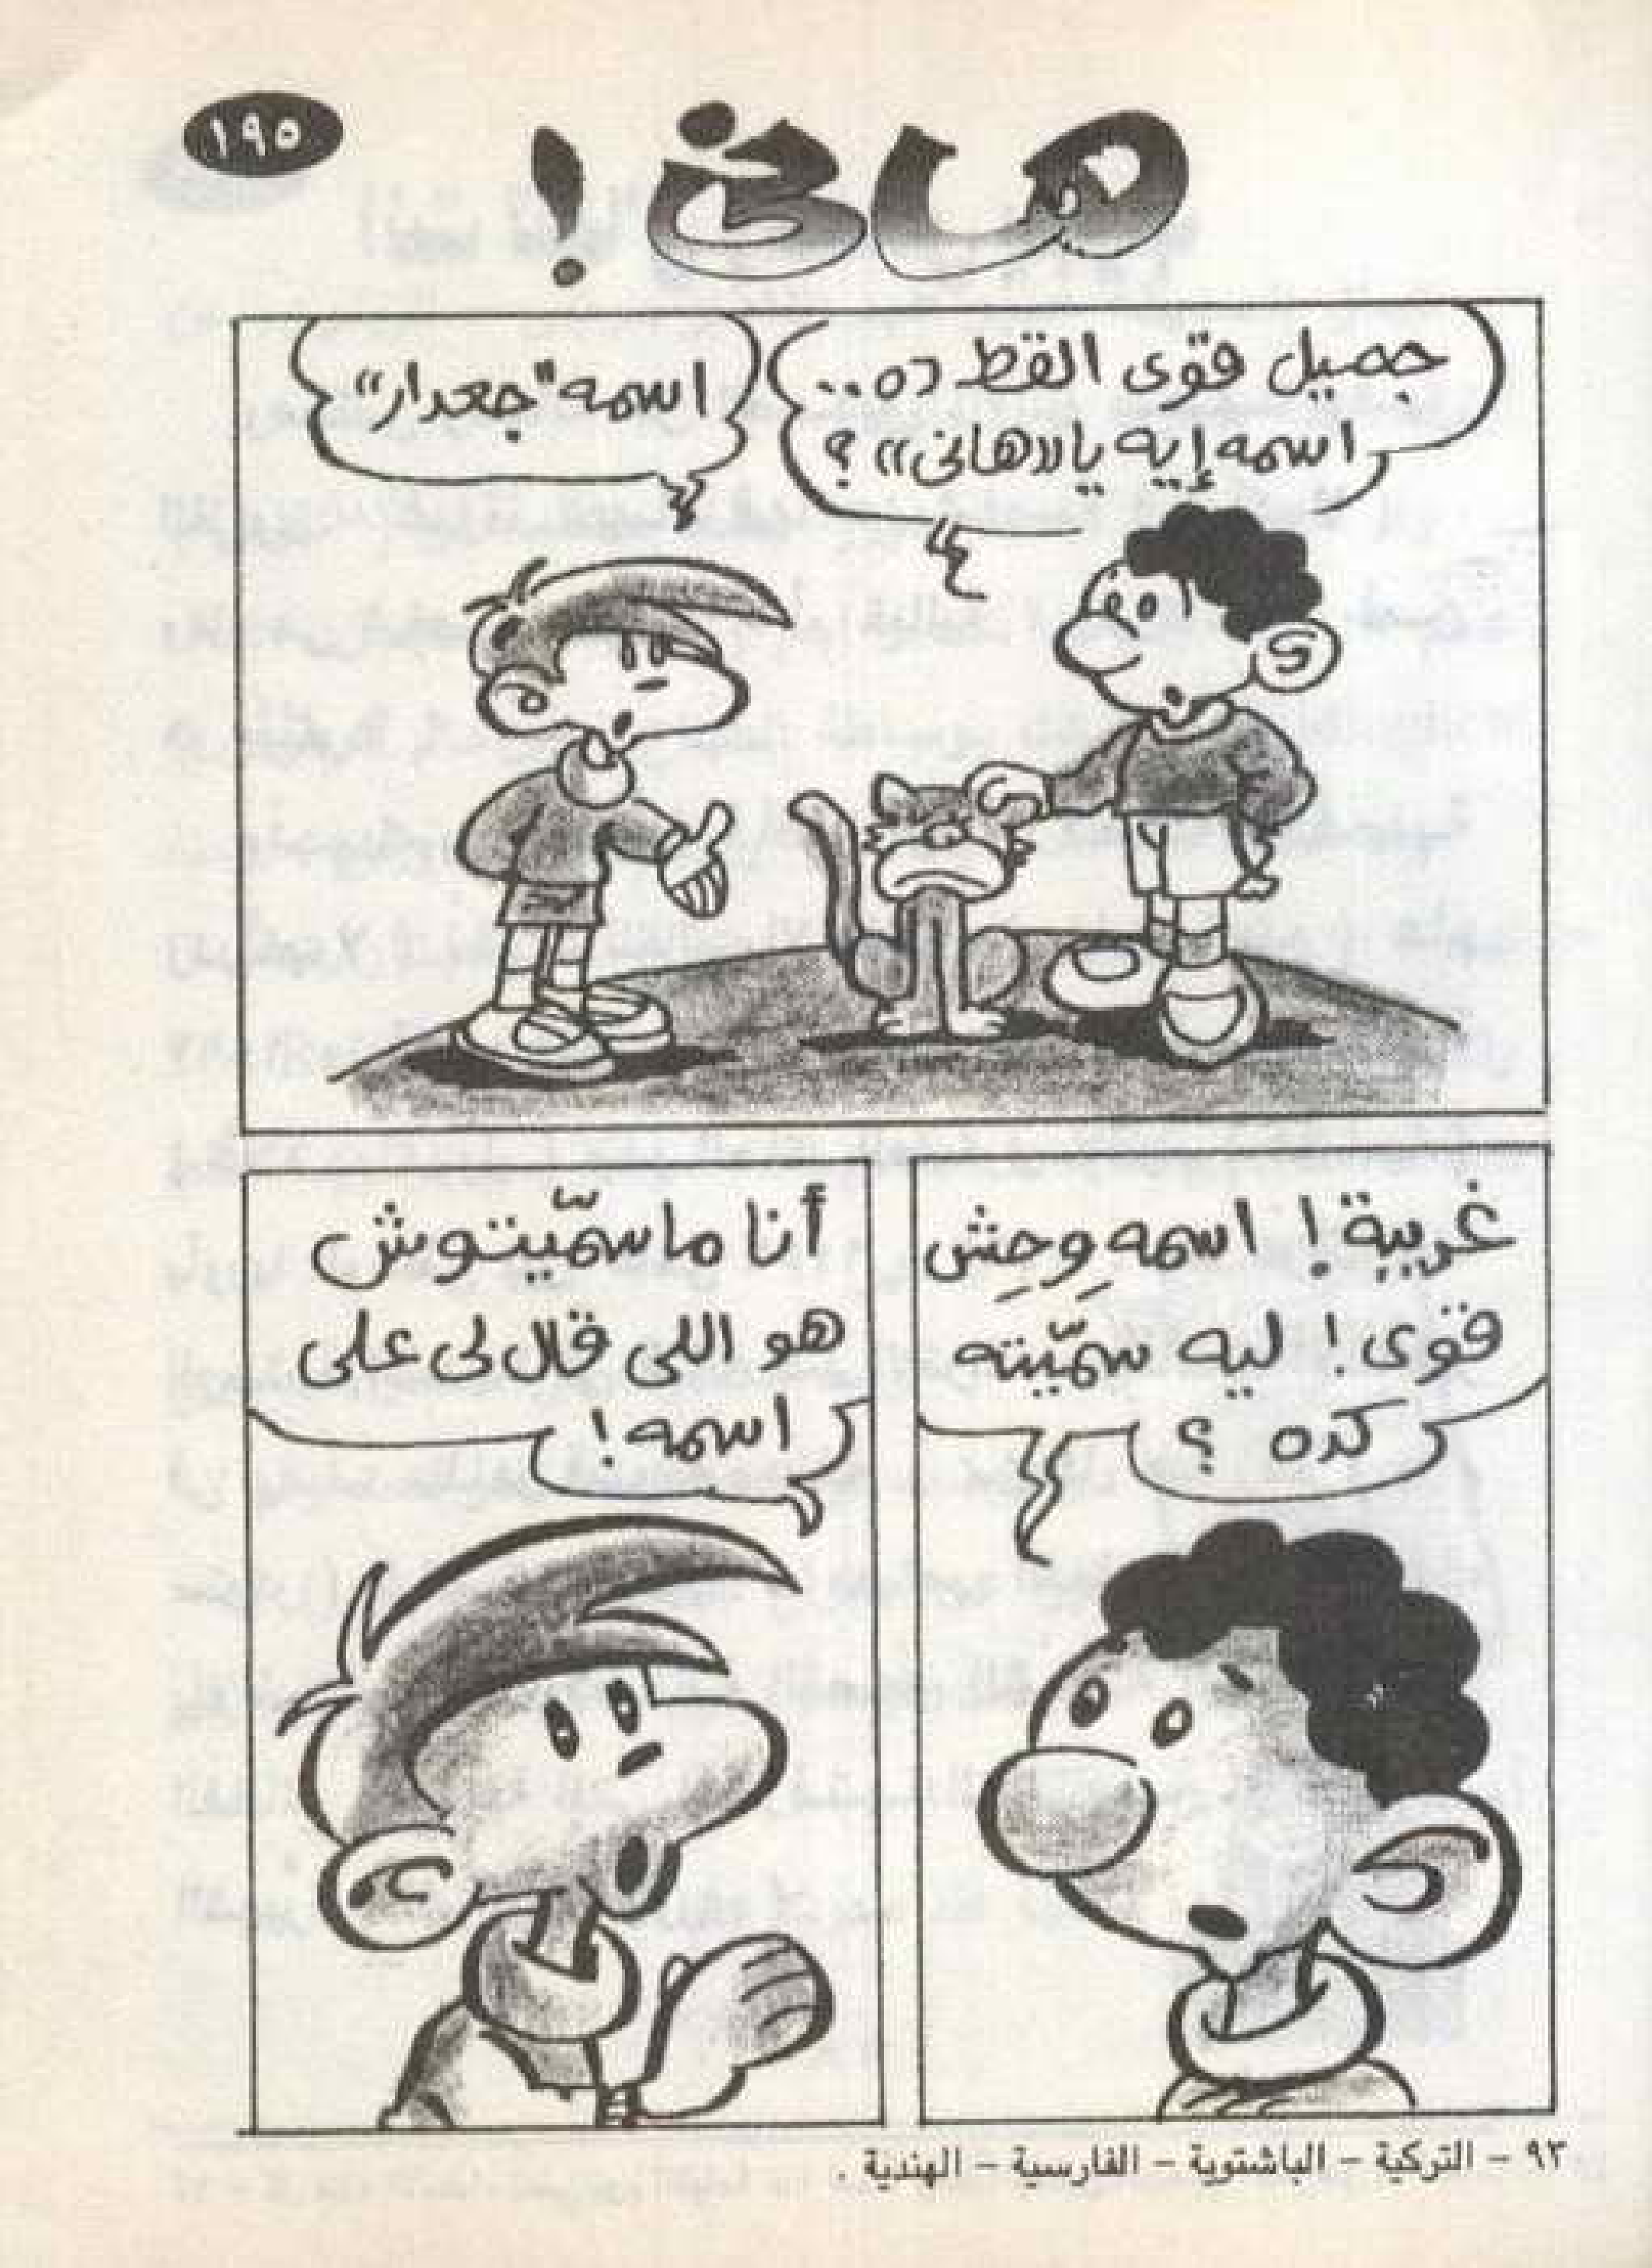 ١٩٥
هانى !
جميل قوى القط ده..
اسمه إيه يا «هانى» ؟
اسمه "جعدار"
غريبة ! اسمه وِحِش
قوى ! ليه سمّيته
كده ؟
أنا ماسمّيتوش
هو اللى قال لى على
اسمه !
٩٣ - التركية - الباشتوية - الفارسية - الهندية .